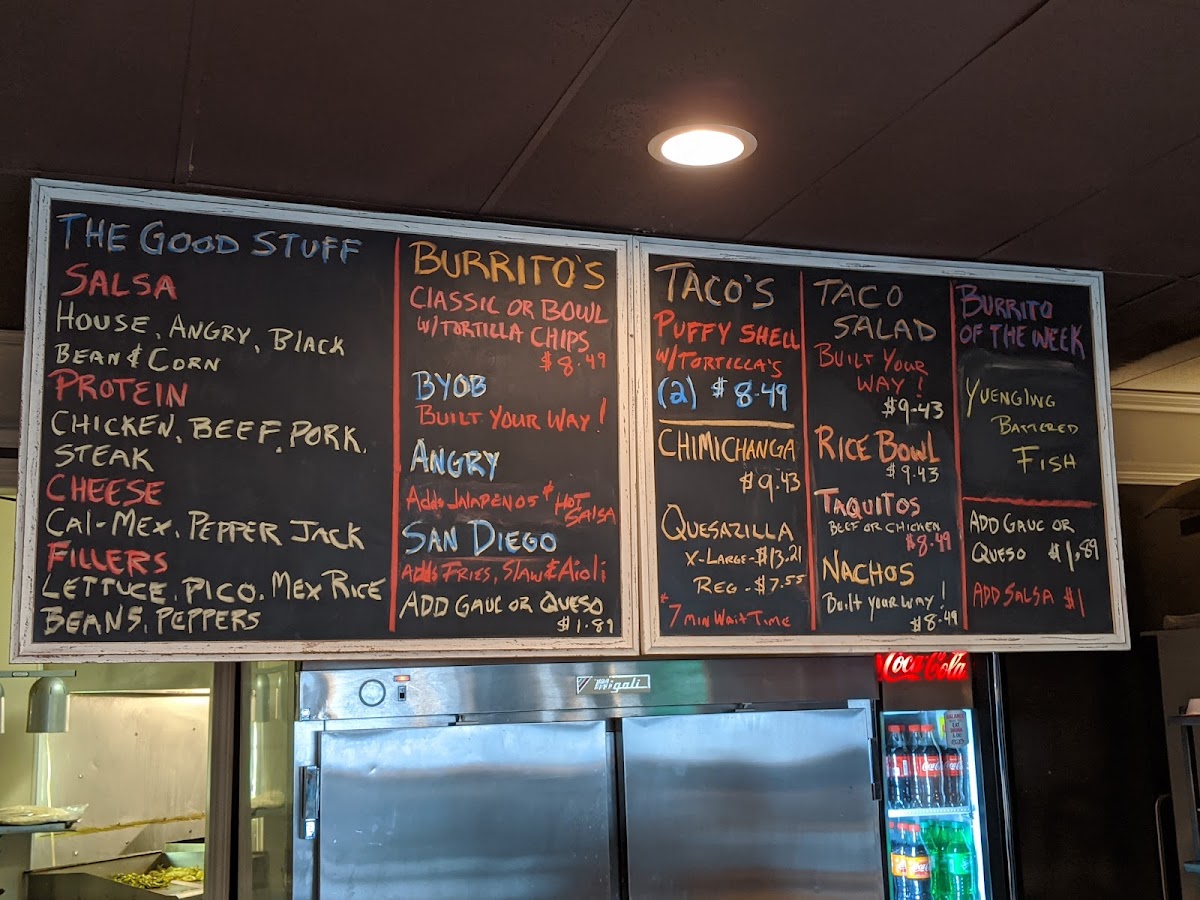 THE GOOD STUFF
SALSA
HOUSE, ANGRY, BLACK
BEAN & CORN
PROTEIN
CHICKEN, BEEF, PORK,
STEAK
CHEESE
CAL-MEX, PEPPER JACK
FILLERS
LETTUCE, PICO, MEX RICE
BEANS, PEPPERS
BURRITO'S
CLASSIC OR BOWL
W/TORTILLA CHIPS
$8.49
BYOB
BUILT YOUR WAY!
ANGRY
Adds JALAPENOS & HOT
SALSA
SAN DIEGO
Adds FRIES, SLAW & AIOLI
ADD GAUC OR QUESO
$1.89
TACO'S
PUFFY SHELL
W/TORTILLA'S
(2) $8.49
CHIMICHANGA
$9.43
QUESAZILLA
X-LARGE-$13.21
REG-$7.55
*7 min Wait Time
TACO
SALAD
BUILT YOUR
WAY!
$9.43
RICE BOWL
$9.43
TAQUITOS
BEEF OR CHICKEN
$8.49
NACHOS
Built your way!
$8.49
BURRITO
OF THE WEEK
YUENGLING
BATTERED
FISH
ADD GAUC OR
QUESO $1.89
ADD SALSA $1
Migali
Coca-Cola